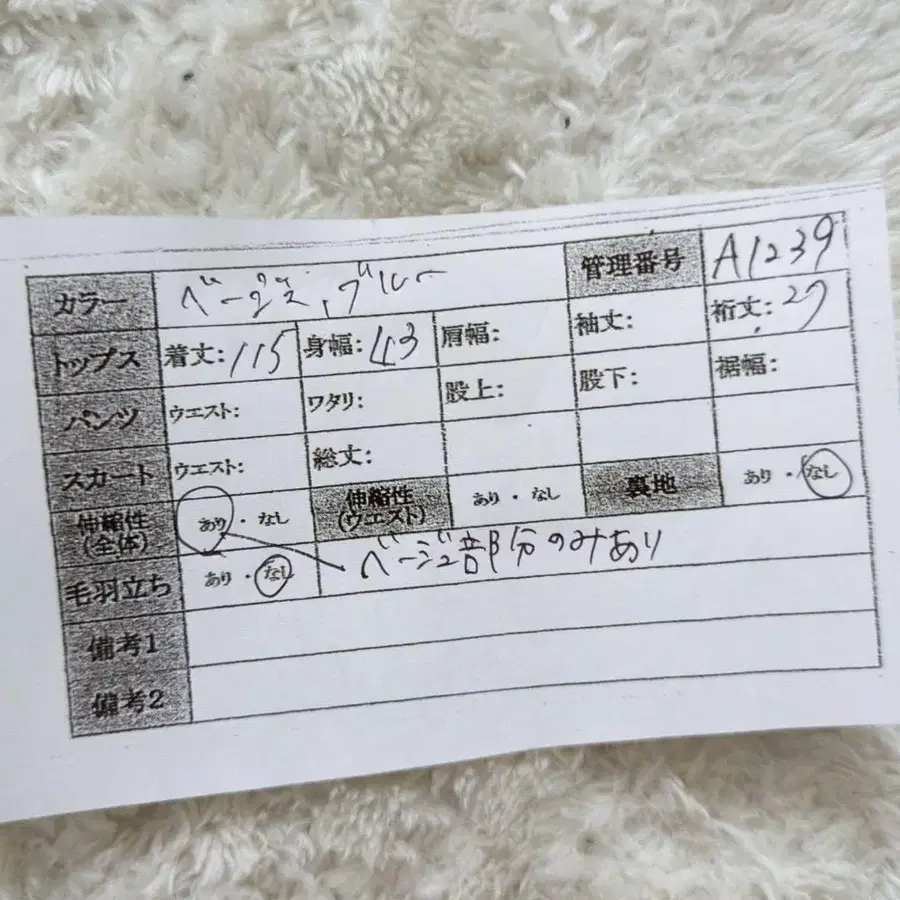 カラー ベージュ、ブルー 管理番号 A1239
トップス 着丈:115 身幅:43 肩幅: 袖丈: 裄丈:27
パンツ ウエスト: ワタリ: 股上: 股下: 裾幅:
スカート ウエスト: 総丈:
伸縮性(全体) あり・なし 伸縮性(ウエスト) あり・なし 裏地 あり・なし
毛羽立ち あり・なし ベージュ部分のみあり
備考1
備考2